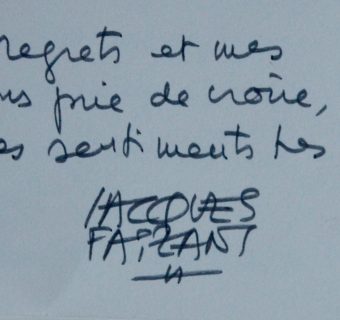 regrets et mes
prie de croire,
sentiments très
JACQUES
FAIZANT